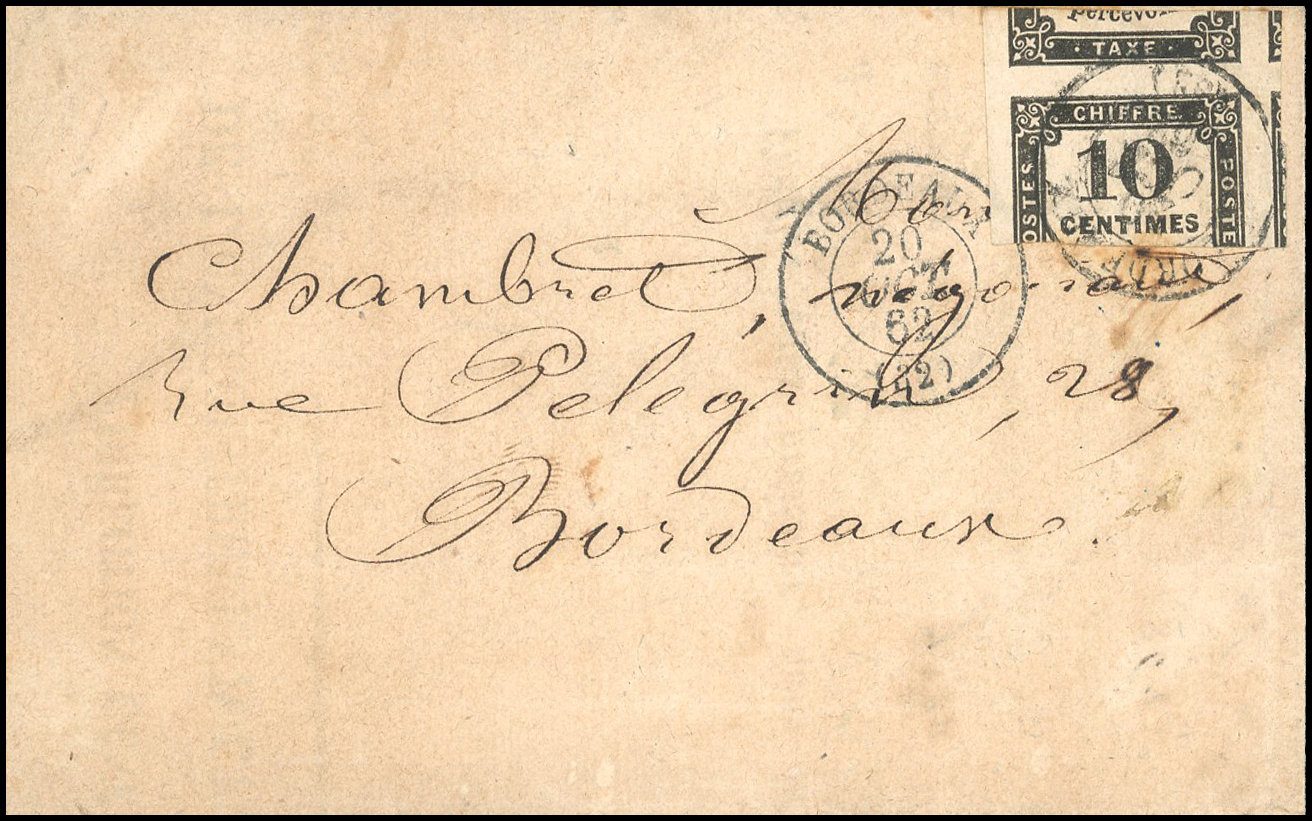 percevoir
TAXE
CHIFFRE
10
CENTIMES
POSTES
POSTE
BORDEAUX
20
OCT
62
(32)
Mon
Chambret, négociant,
rue Pelegrin, 28,
Bordeaux.